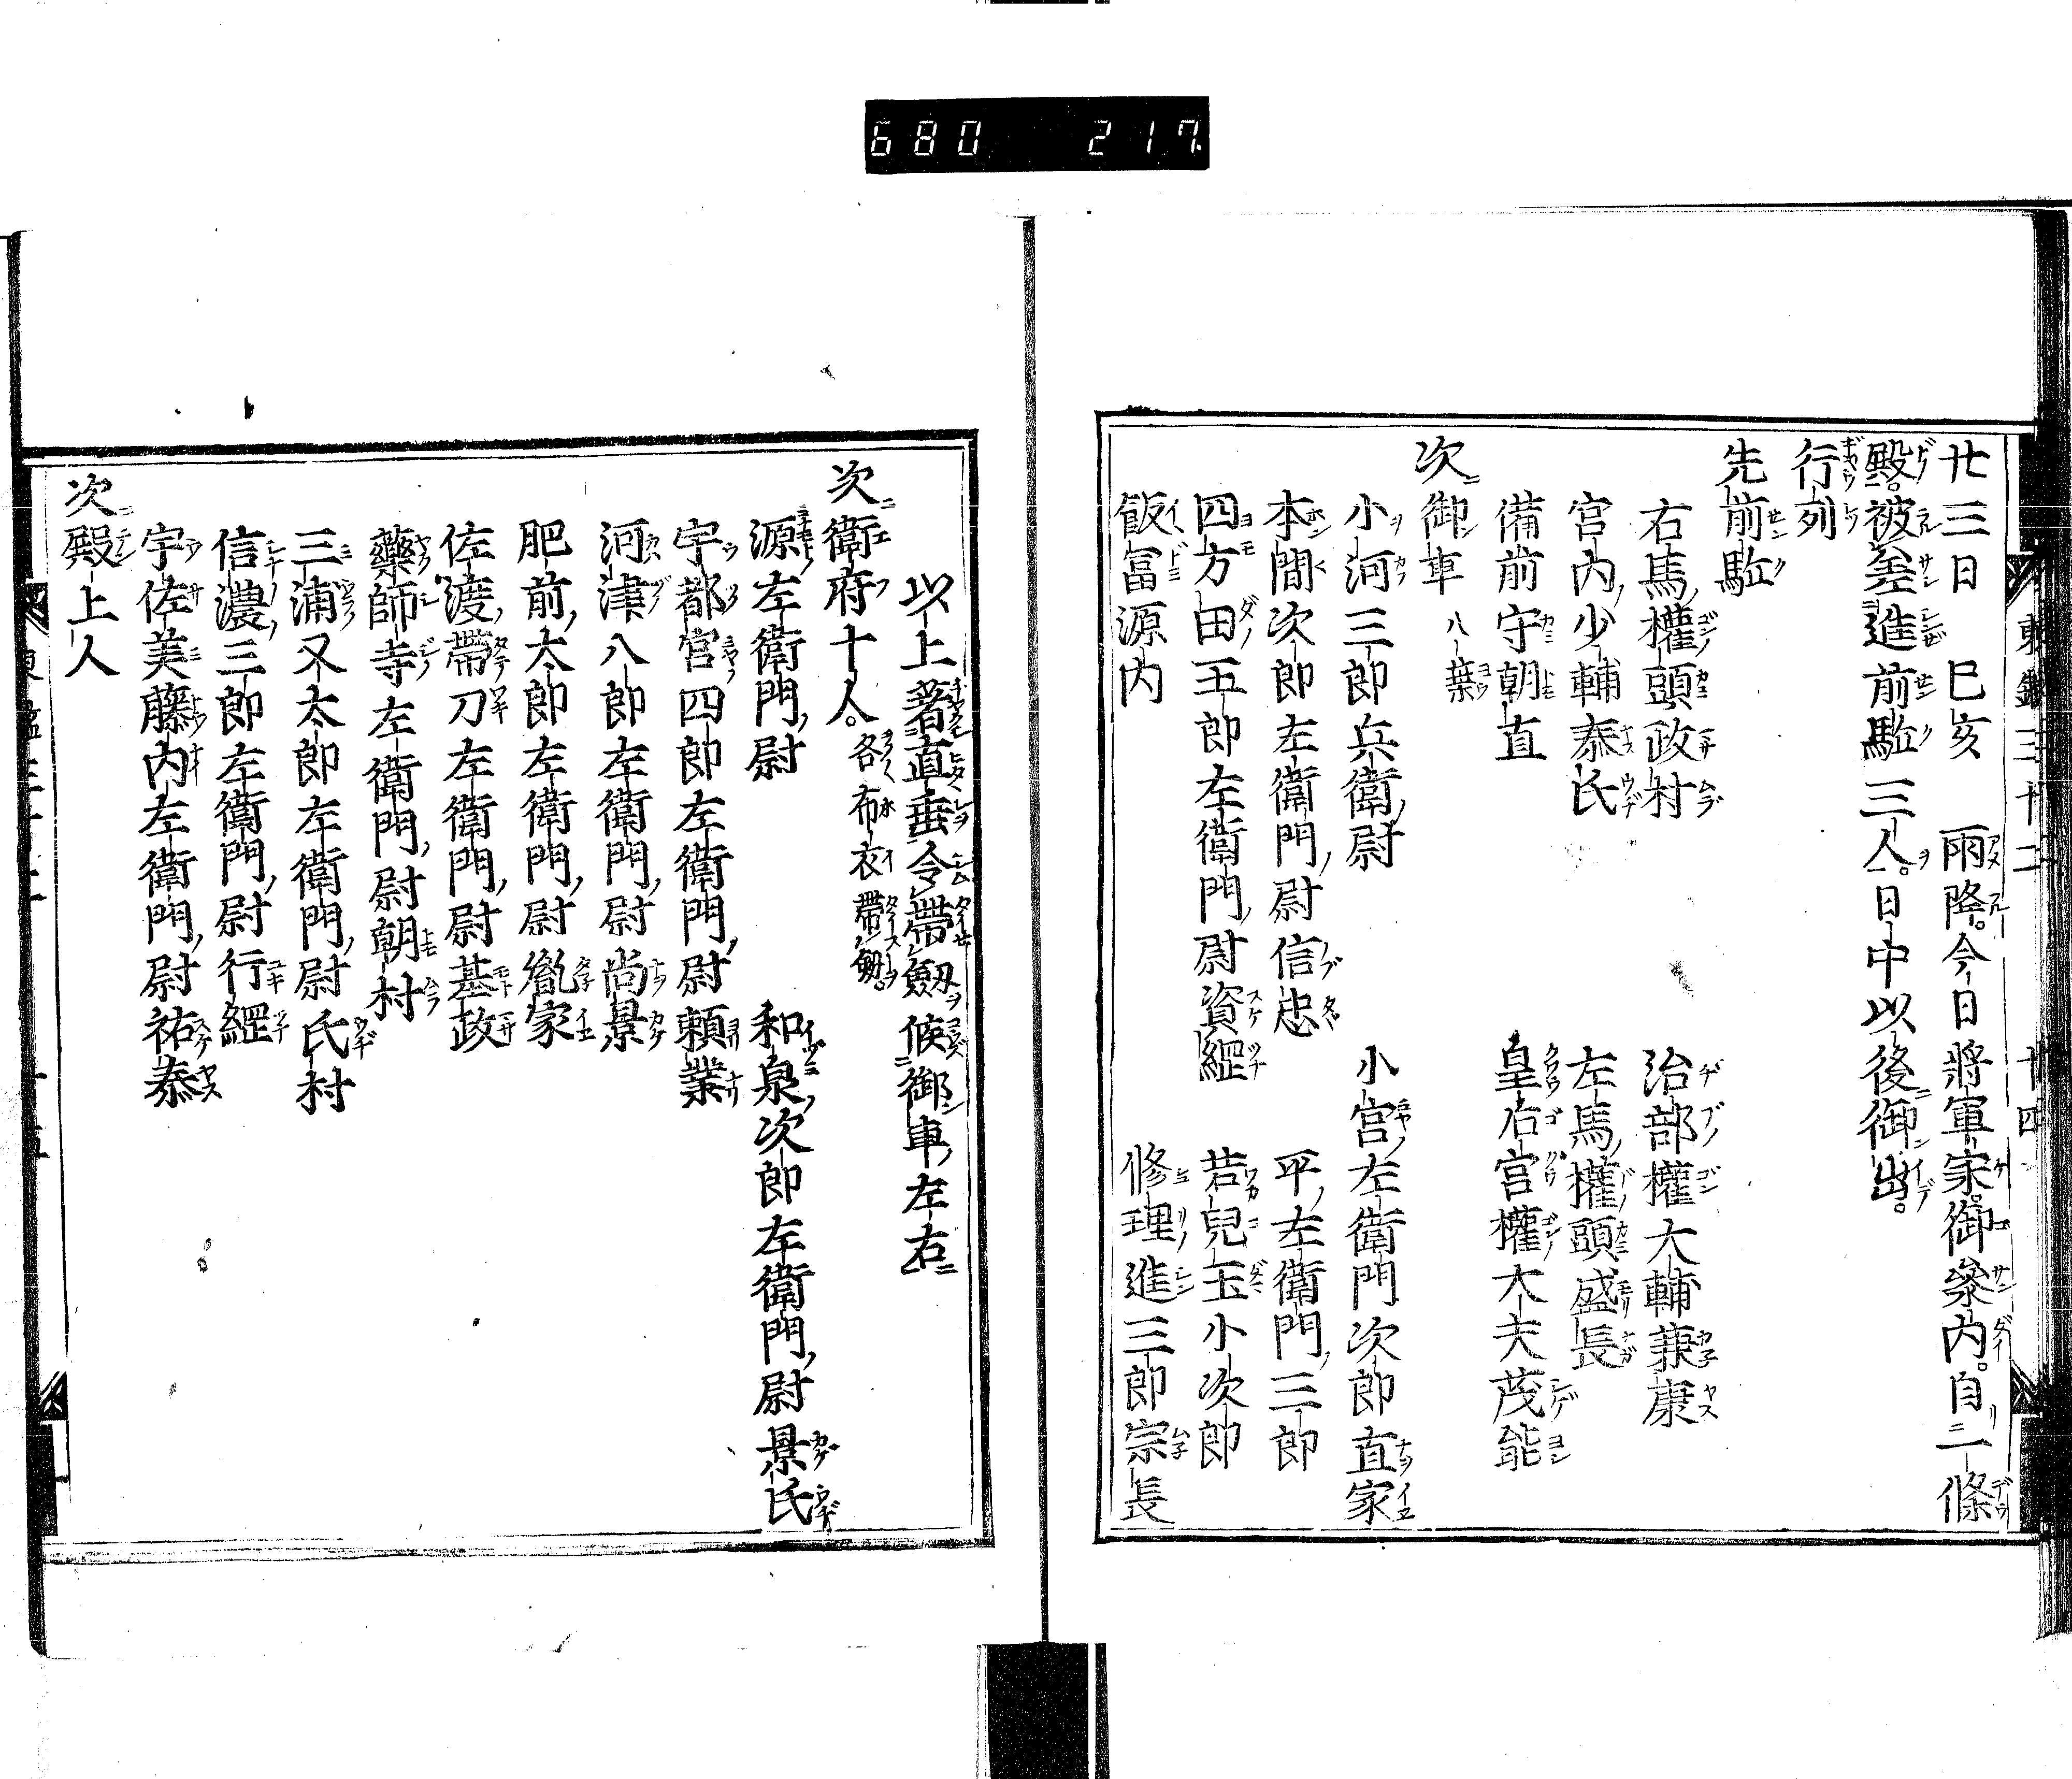 680 217
廿三日 巳亥 雨降。今日將軍家。御參内。自二條
殿。被差進前駈三人。日中以後御出。
行列
先前駈
右馬權頭政村 治部權大輔兼康
宮内少輔泰氏 左馬權頭盛長
備前守朝直 皇后宮權大夫茂能
次御車 八葉
小河三郎兵衛尉 小宮左衛門次郎直家
本間次郎左衛門尉信忠 平左衛門三郎
四方田五郎左衛門尉資經 若兒玉小次郎
飯冨源内 修理進三郎宗長
以上著直垂令帶劔候御車左右
次衛府十人。各布衣帶劔。
源左衛門尉 和泉次郎左衛門尉景氏
宇都宮四郎左衛門尉頼業
河津八郎左衛門尉尚景
肥前太郎左衛門尉胤家
佐渡帶刀左衛門尉基政
藥師寺左衛門尉朝村
三浦又太郎左衛門尉氏村
信濃三郎左衛門尉行經
宇佐美藤内左衛門尉祐泰
次殿上人